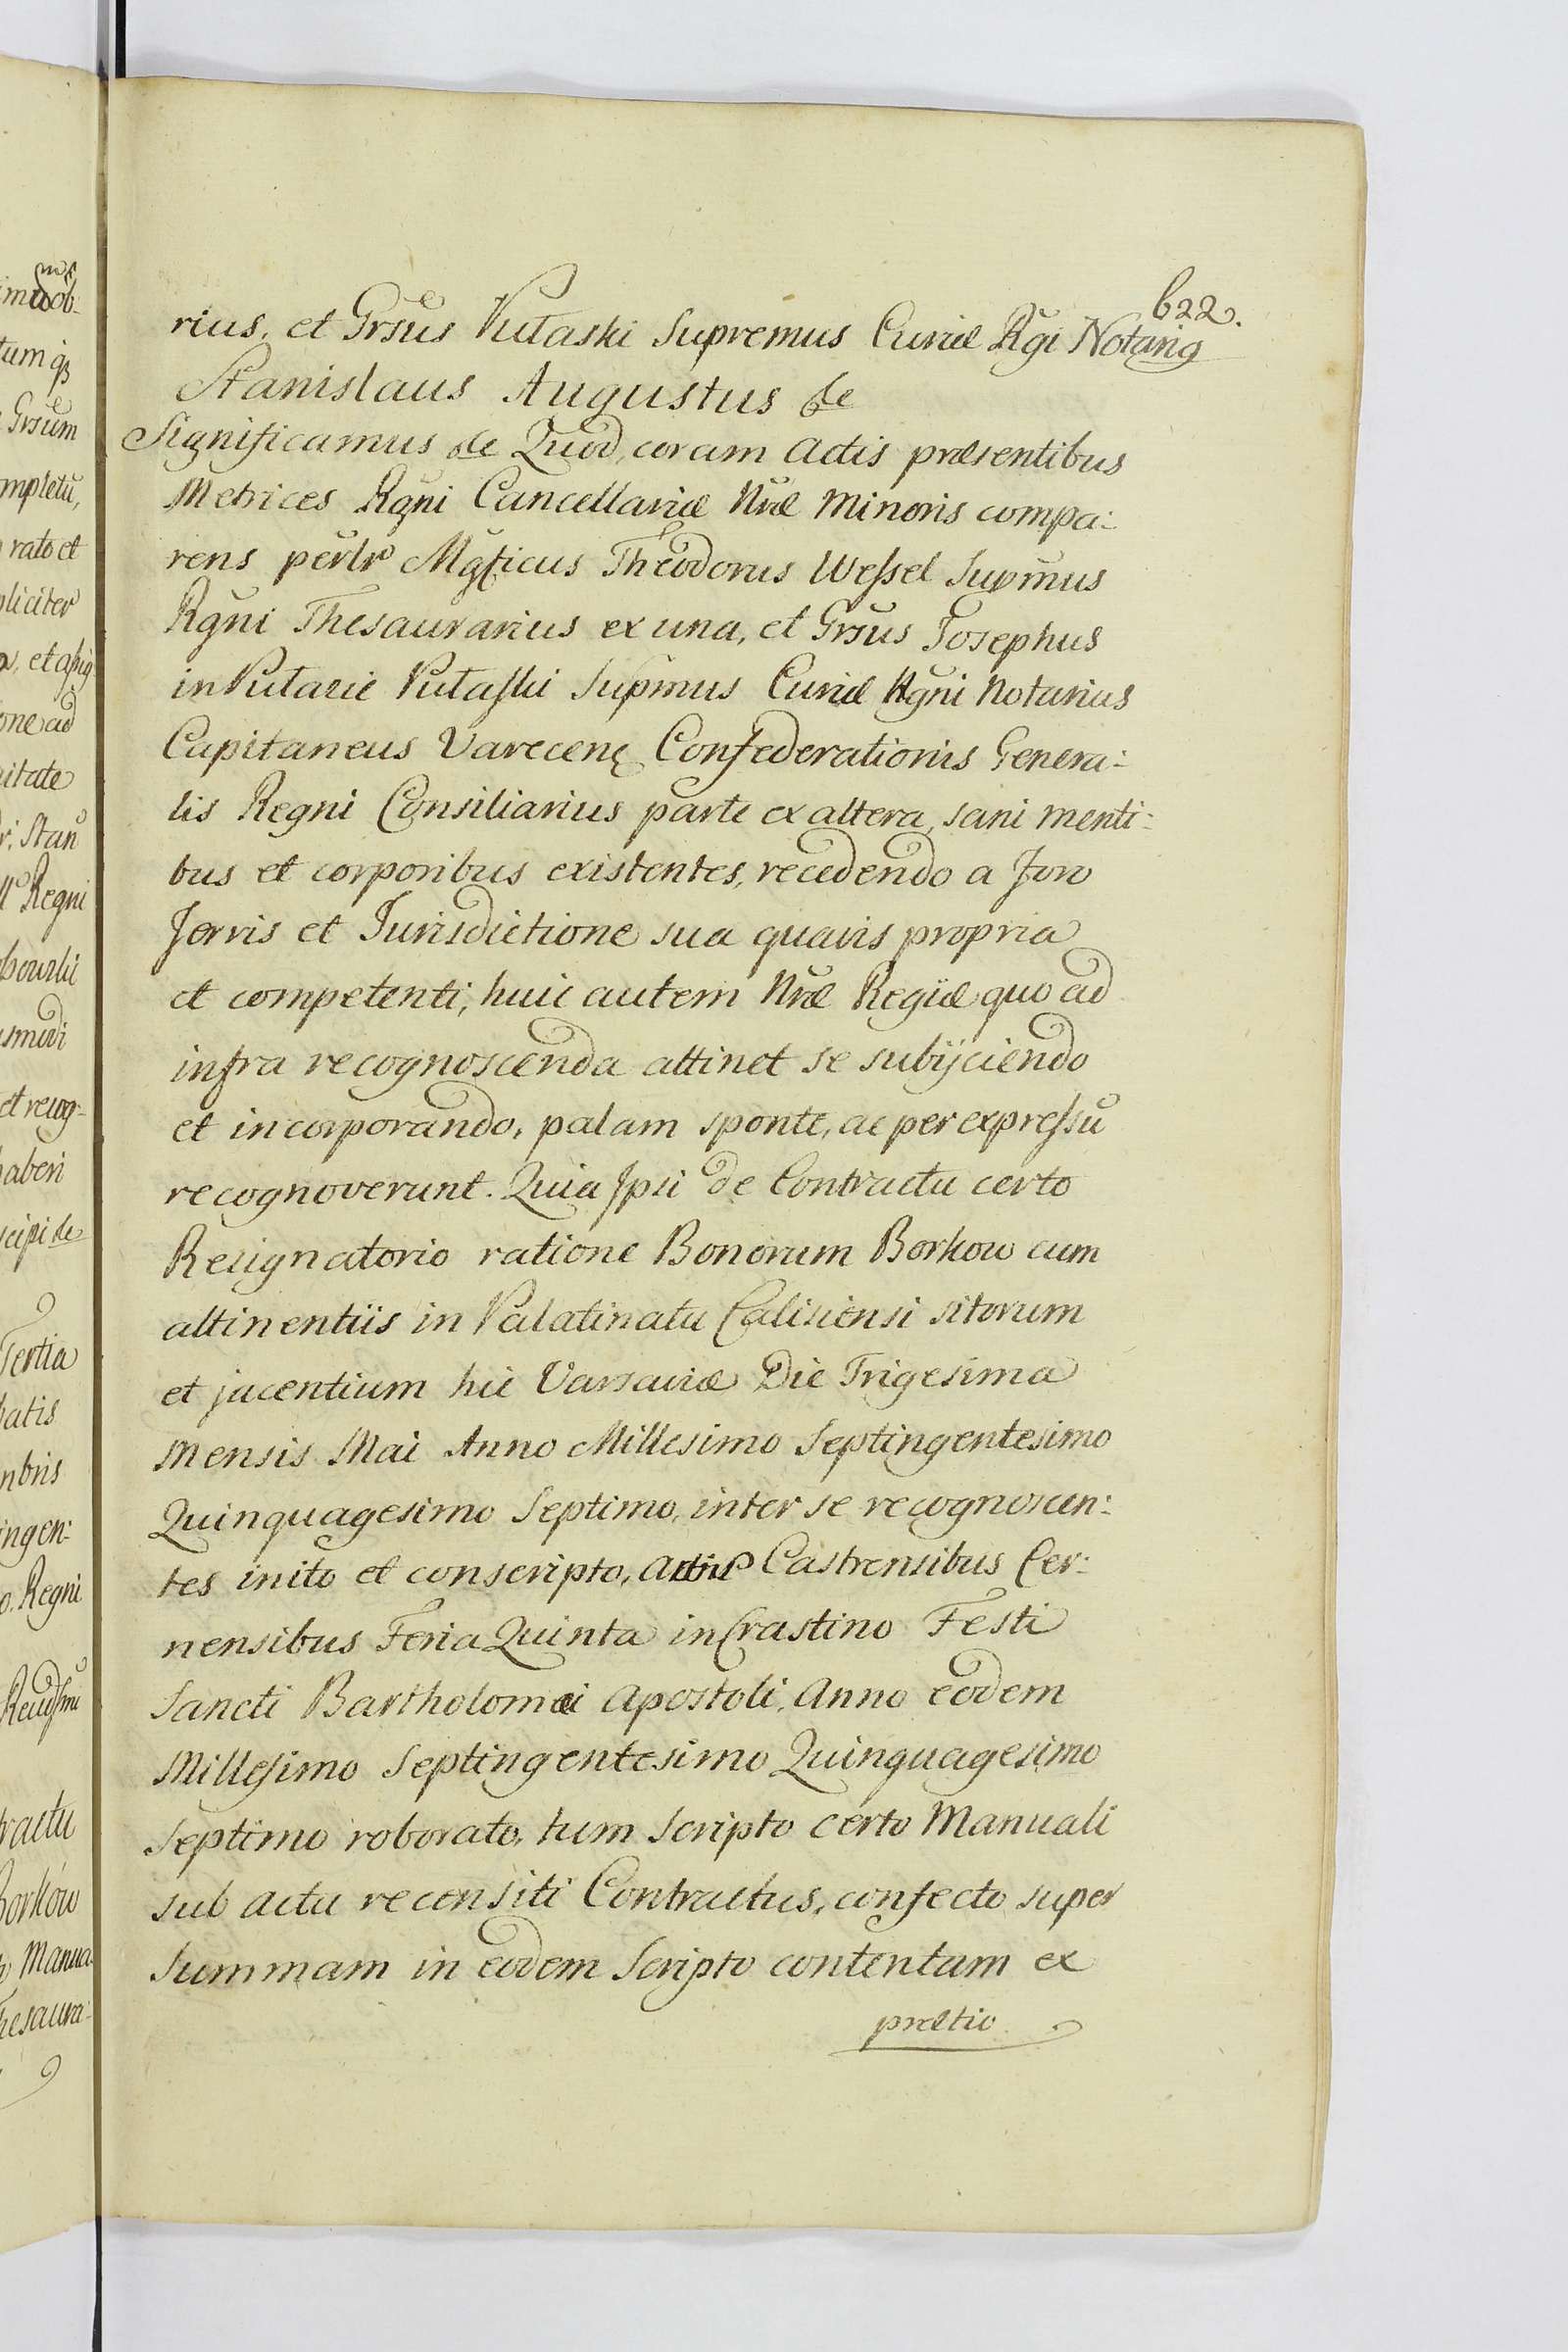 622.
rius, et Grsus Pułaski Supremus Curiæ Rgi Notarig
Stanislaus Augustus &c
Significamus &c Quod, coram Actis præsentibus
Metrices Rgni Cancellariæ Nræ Minoris compa:
rens perIlr Mgficus Theodorus Wessel Supmus
Rgni Thesaurarius ex una, et Grsus Josephus
in Pułazie Pułaski Supmus Curiæ Rgni Notarius
Capitaneus Varecen Confederationis Genera:
lis Regni Consiliarius parte ex altera, sani menti:
bus et corporibus existentes, recedendo a Foro
Terris et Jurisdictione sua quavis propria
et competenti, huic autem Nræ Regiæ quo ad
infra recognoscenda attinet se subijciendo
et incorporando, palam sponte, ac per expressũ
recognoverunt. Quia Ipsi de Contractu certo
Resignatorio ratione Bonorum Borkow cum
attinentiis in Palatinatu Calisiensi sitorum
et jacentium hic Varsaviæ Die Trigesima
Mensis Mai Anno Millesimo Septingentesimo
Quinquagesimo Septimo, inter se recognoscen:
tes inito et conscripto, Actis Castrensibus Cer:
nensibus Feria Quinta in Crastino Festi
Sancti Bartholomæi Apostoli, Anno eodem
Millesimo Septingentesimo Quinquagesimo
Septimo roborato, tum Scripto certo Manuali
sub actu recensiti Contractus, confecto super
Summam in eodem Scripto contentam ex
prætio